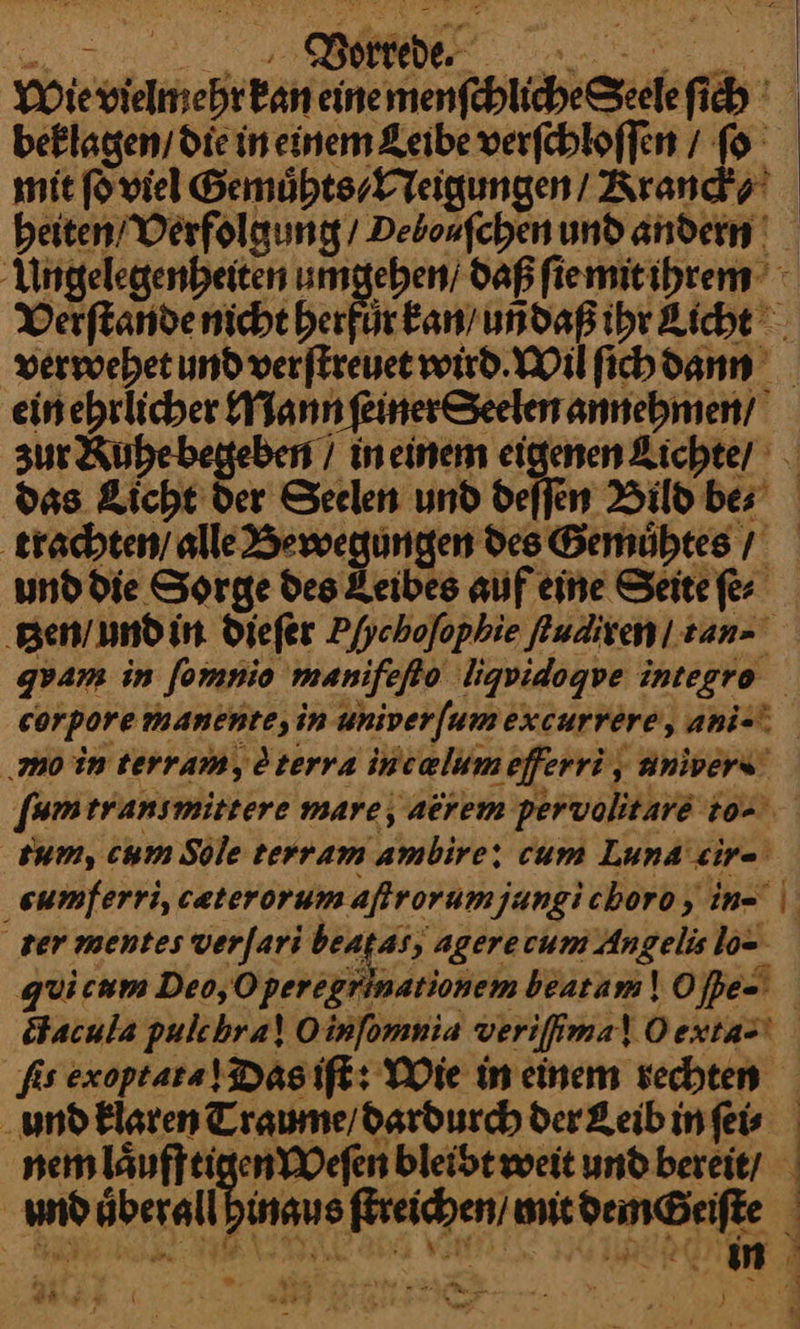 Vorrede.
Wie vielmehr kan eine menſchliche Seele ſich
beklagen/ die in einem Leibe verſchloſſen / ſo
mit ſo viel Gemuͤhts⸗Neigungen / Kranck⸗
heiten/ Verfolgung / Debouſchen und andern
Ungelegenheiten umgehen/ daß ſie mit ihrem
Verſtande nicht herfuͤr kan/ uñ daß ihr Licht
verwehet und verſtreuet wird. Wil ſich dann
ein ehrlicher Mann ſeiner Seelen annehmen/
zur Ruhe begeben / in einem eigenen Lichte/
das Licht der Seelen und deſſen Bild be⸗
trachten/ alle Bewegungen des Gemuͤhtes /
und die Sorge des Leibes auf eine Seite ſe⸗
tzen/ und in dieſer Pſychoſophie ſtudiren / tan-
qvam in ſomnio manifeſto liqvidoqve integro
corpore manente, in univerſum excurrere, ani-
mo in terram, è terra in cælum efferri, univer-
ſum transmittere mare, aërem pervolitare to-
tum, cum Sole terram ambire: cum Luna cir-
cumferri, cæterorum aſtrorum jungi choro, in-
ter mentes verſari beatas, agere cum Angelis lo-
qvi cum Deo, O peregrinationem beatam! O ſpe-
ctacula pulchra! O inſomnia veriſſima! O exta-
ſis exoptata! Das iſt: Wie in einem rechten
und klaren Traume/ dardurch der Leib in ſei⸗
nem laͤufftigen Weſen bleibt weit und bereit/
und uͤberall hinaus ſtreichen/ mit dem Geiſte
in